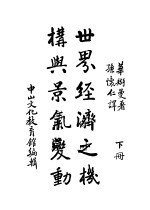 華樹曼著
孫懷仁譯
下冊
世界經濟之機
構與景氣變動
中山文化教育館編輯